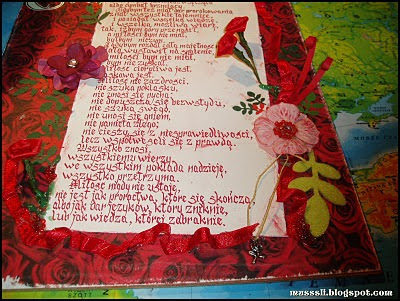 albo cymbał brzmiący
też miał dar prorokowania
znał wszystkie tajemnice,
i posiadał wszelką wiedzę
i wszelką możliwą wiarę,
tak, iżbym góry przenosił,
a miłości bym nie miał,
byłbym niczym.
gdybym rozdał całą majętność
wystawił na spalenie
miłości bym nie miał,
bym nie zyskał.
cierpliwa jest,
jest.
nie zazdrości
nie szuka poklasku,
nie unosi się pychą;
nie dopuszcza się bezwstydu,
nie szuka swego,
nie unosi się gniewem,
nie pamięta złego;
nie cieszy się z niesprawiedliwości,
lecz współweseli się z prawdą.
Wszystko znosi,
wszystkiemu wierzy,
we wszystkim pokłada nadzieję,
wszystko przetrzyma.
Miłość nigdy nie ustaje,
nie jest jak proroctwa, które się skończą,
albo jak dar języków, który zniknie,
lub jak wiedza, której zabraknie.
musssli.blogspot.com